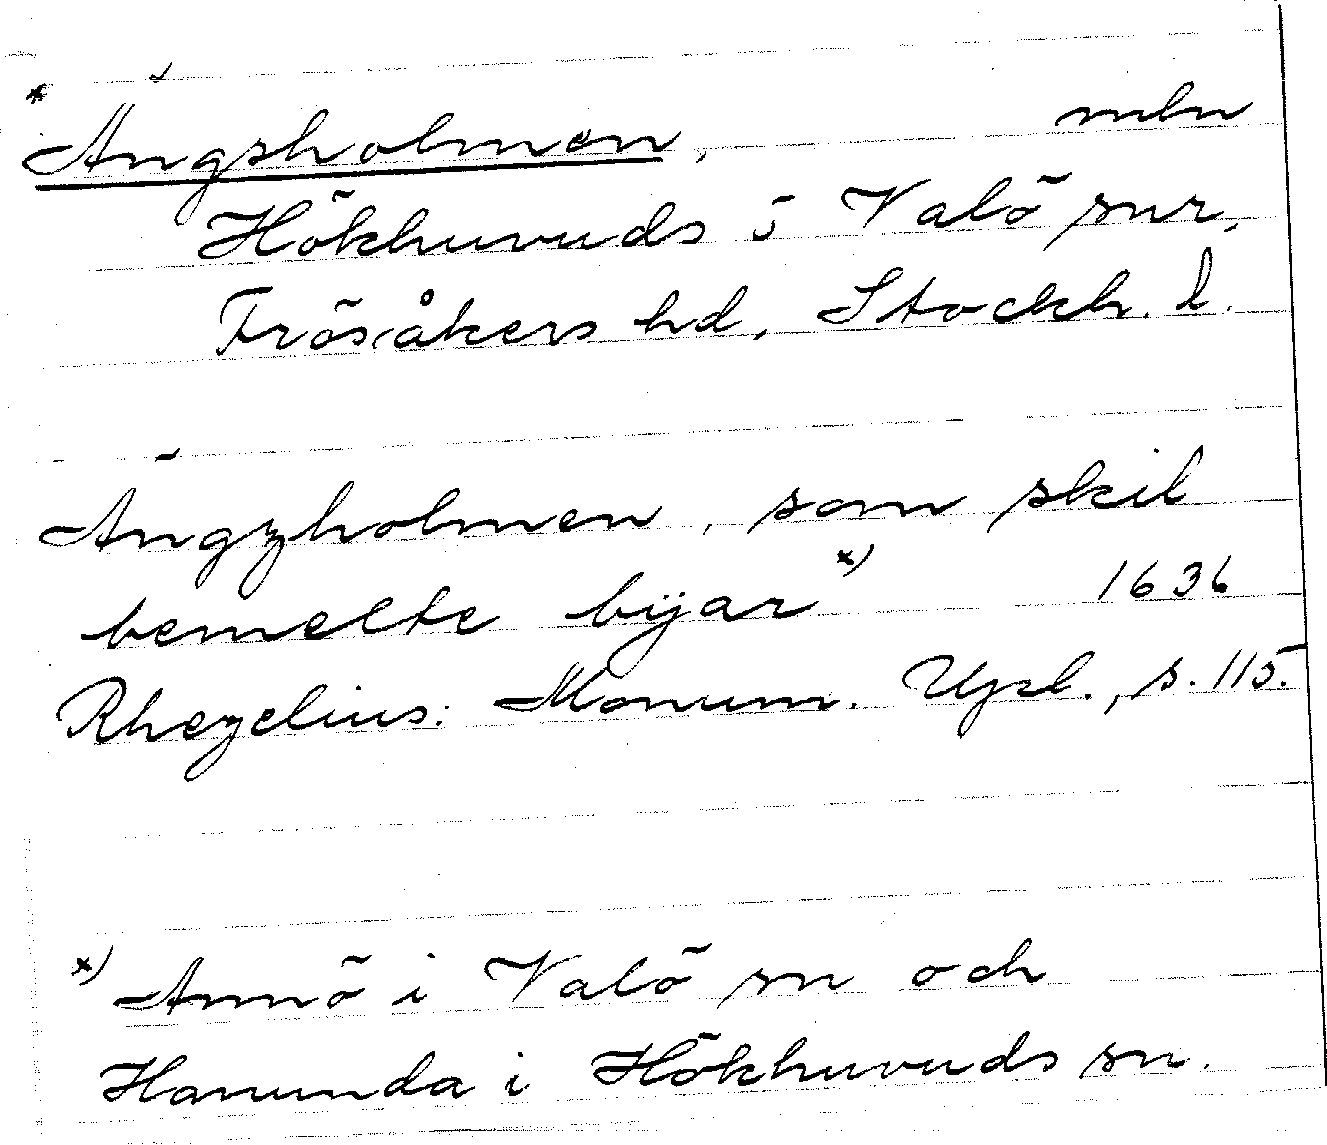 * Ängsholmen, mln
Hökhuvuds o Valö snr,
Frösåkers hd, Stockh. l.
Ängzholmen, som skil
bemelte bÿar x) 1636
Rhezelius: Monum. Upl., s. 115.
x) Annö i Valö sn och
Harunda i Hökhuvuds sn.